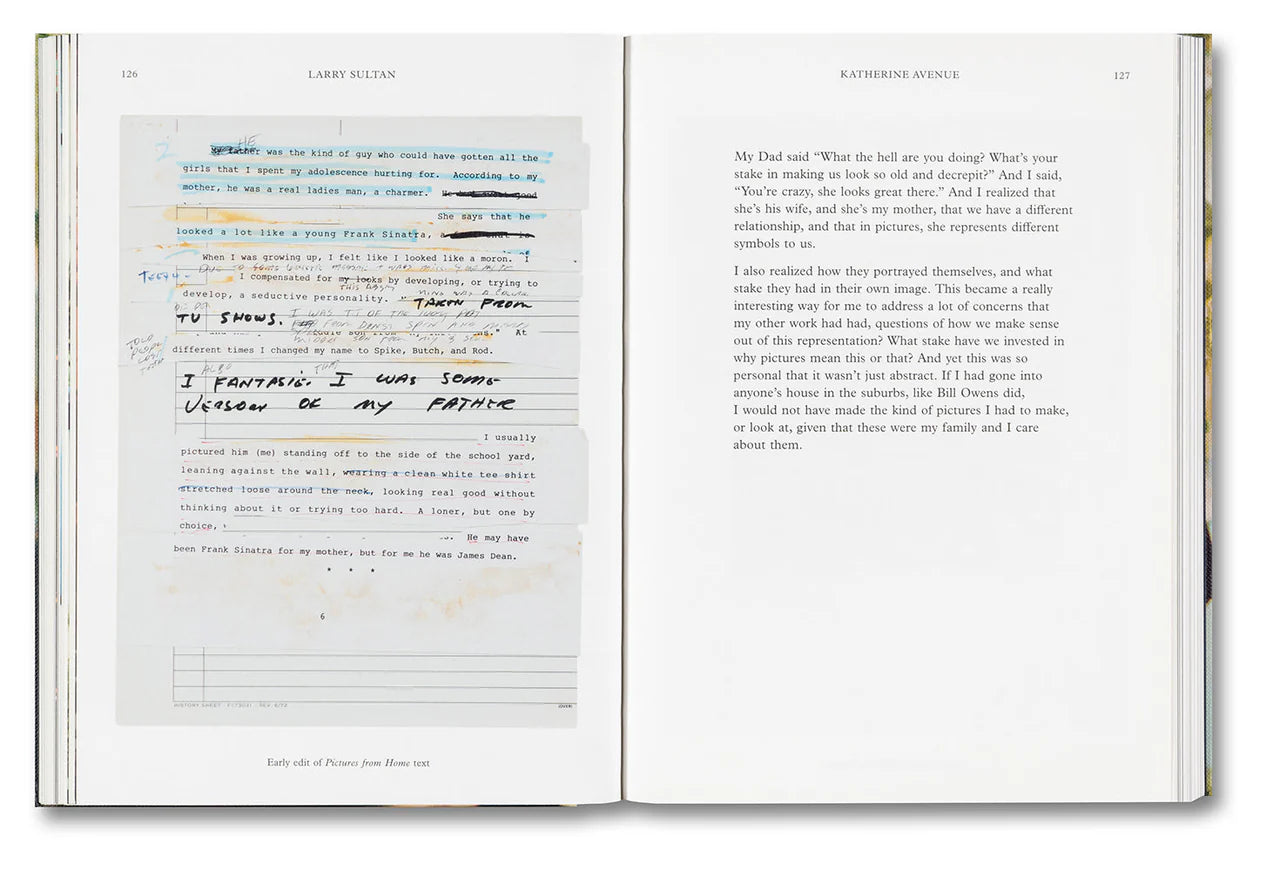 126
LARRY SULTAN
HE
My father was the kind of guy who could have gotten all the
girls that I spent my adolescence hurting for. According to my
mother, he was a real ladies man, a charmer.
She says that he
looked a lot like a young Frank Sinatra,
When I was growing up, I felt like I looked like a moron. I
TEETH-
I compensated for my looks by developing, or trying to
develop, a seductive personality. TAKEN FROM
TV SHOWS.
At
different times I changed my name to Spike, Butch, and Rod.
ALSO
I FANTASIC. I WAS SOME
VERSION OF MY FATHER
I usually
pictured him (me) standing off to the side of the school yard,
leaning against the wall, wearing a clean white tee shirt
stretched loose around the neck, looking real good without
thinking about it or trying too hard. A loner, but one by
choice,
He may have
been Frank Sinatra for my mother, but for me he was James Dean.
* * *
6
HISTORY SHEET
(OVER)
Early edit of Pictures from Home text
KATHERINE AVENUE
127
My Dad said “What the hell are you doing? What’s your
stake in making us look so old and decrepit?” And I said,
“You’re crazy, she looks great there.” And I realized that
she’s his wife, and she’s my mother, that we have a different
relationship, and that in pictures, she represents different
symbols to us.
I also realized how they portrayed themselves, and what
stake they had in their own image. This became a really
interesting way for me to address a lot of concerns that
my other work had had, questions of how we make sense
out of this representation? What stake have we invested in
why pictures mean this or that? And yet this was so
personal that it wasn’t just abstract. If I had gone into
anyone’s house in the suburbs, like Bill Owens did,
I would not have made the kind of pictures I had to make,
or look at, given that these were my family and I care
about them.